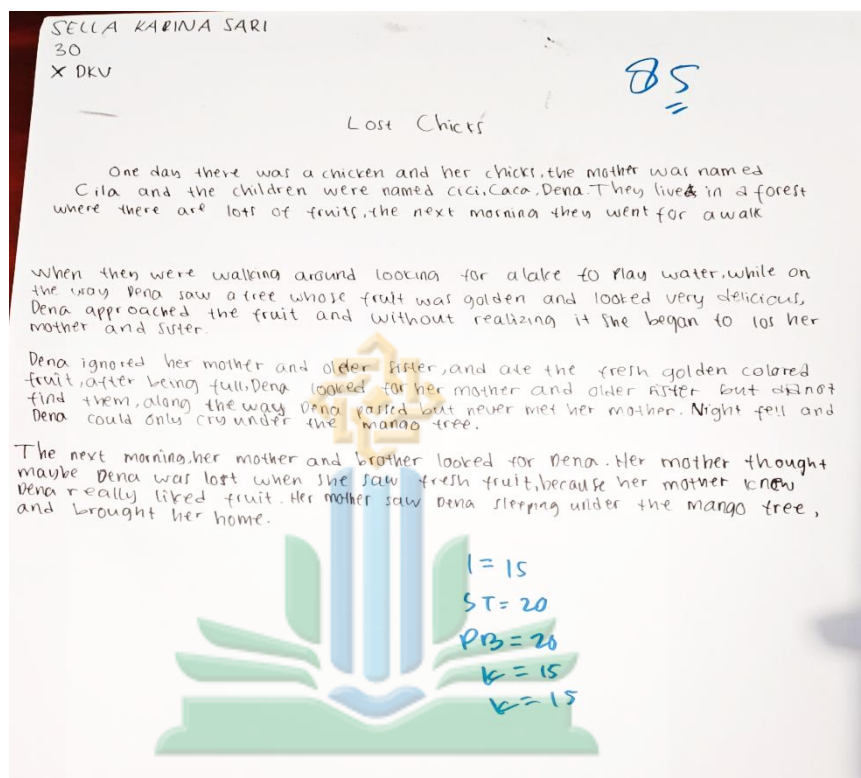 SELLA KARINA SARI
30
X DKV
85
Lost Chicks
One day there was a chicken and her chicks, the mother was named
Cila and the children were named cici, Caca, Dena. They lived in a forest
where there are lots of fruits, the next morning they went for a walk
When they were walking around looking for a lake to play water, while on
the way Dena saw a tree whose fruit was golden and looked very delicious,
Dena approached the fruit and without realizing it she began to los her
mother and sister.
Dena ignored her mother and older sister, and ate the fresh golden colored
fruit, after being full, Dena looked for her mother and older sister but did not
find them, along the way Dena passed but never met her mother. Night fell and
Dena could only cry under the mango tree.
The next morning, her mother and brother looked for Dena. Her mother thought
maybe Dena was lost when she saw fresh fruit, because her mother knew
Dena really liked fruit. Her mother saw Dena sleeping under the mango tree,
and brought her home.
I = 15
ST = 20
PB = 20
K = 15
K = 15